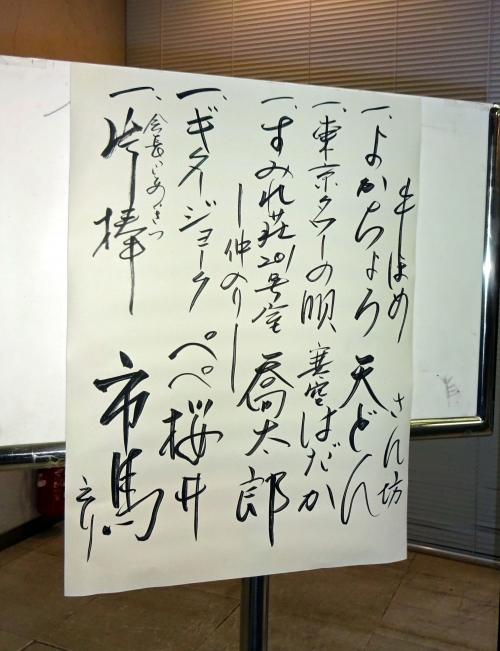 牛ほめ さん坊
一、よかちょろ 天どん
一、東京タワーの唄 寒空はだか
一、すみれ荘201号室 喬太郎
―仲入り―
一、ギタージョーク ペペ桜井
会長ごあいさつ
一、片棒 市馬